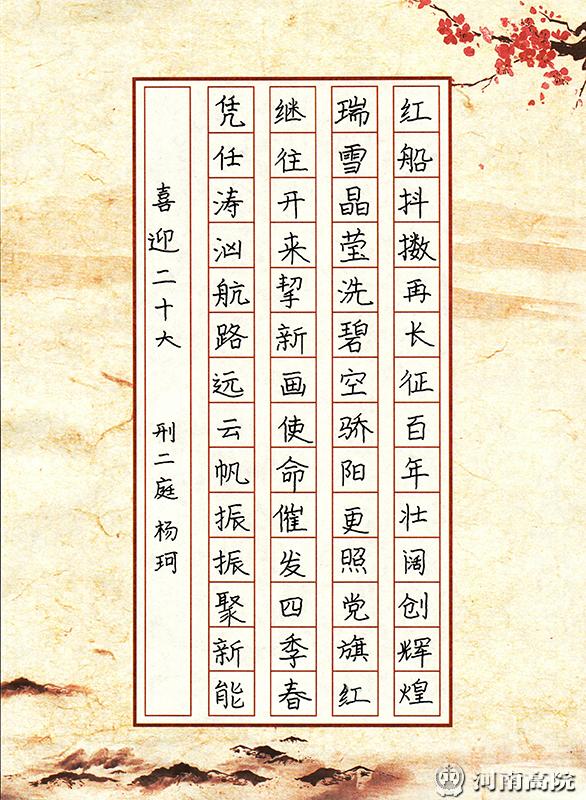 红船抖擞再长征百年壮阔创辉煌
瑞雪晶莹洗碧空骄阳更照党旗红
继往开来挈新画使命催发四季春
凭任涛汹航路远云帆振振聚新能
喜迎二十大 刑二庭 杨珂
河南高院